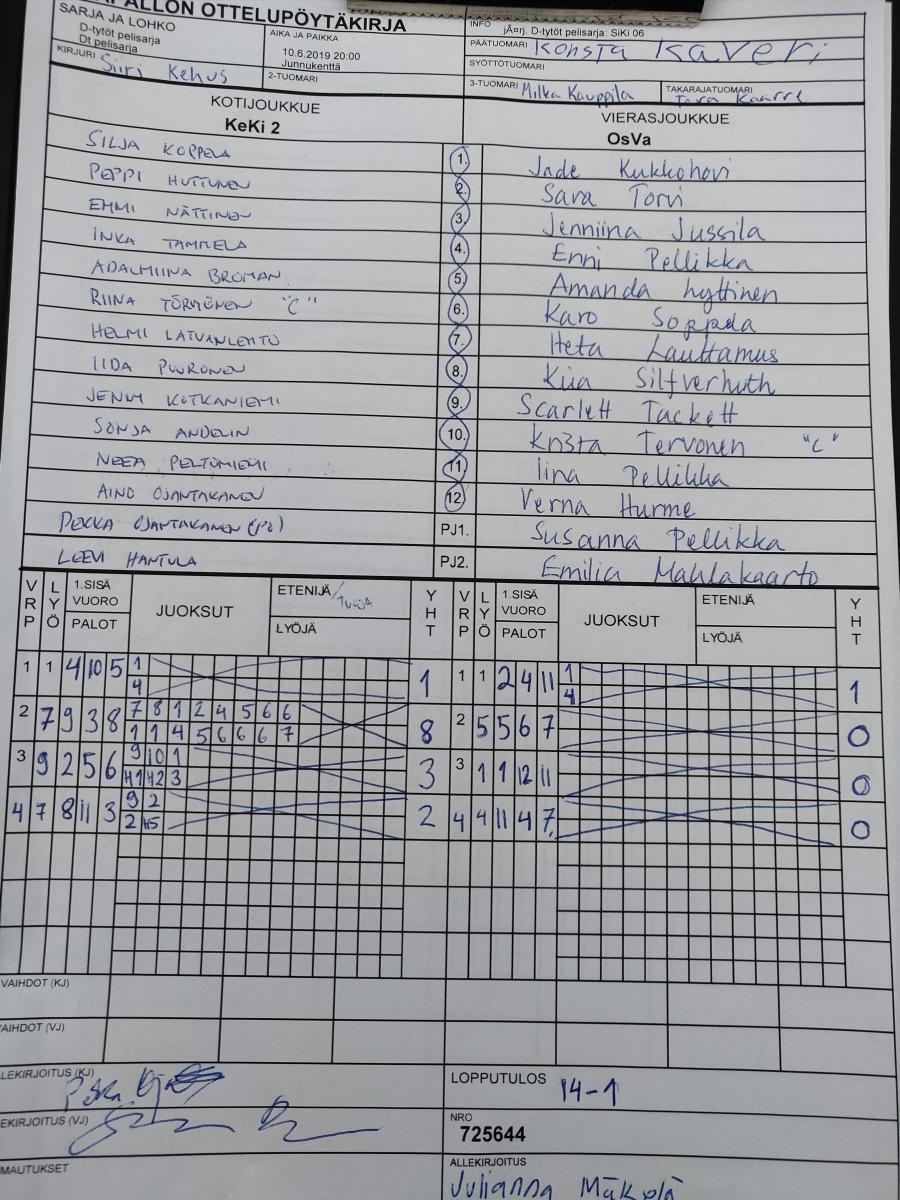 PALLON OTTELUPÖYTÄKIRJA
SARJA JA LOHKO
D-tytöt pelisarja
Dt pelisarja
AIKA JA PAIKKA
10.6.2019 20:00
Junnukenttä
INFO
jÃ¤rj. D-tytöt pelisarja: SiKi 06
PÄÄTUOMARI Konsta Kaveri
SYÖTTÖTUOMARI
KIRJURI Siiri Kehus
2-TUOMARI
3-TUOMARI Milka Kauppila
TAKARAJATUOMARI
Kaarre
KOTIJOUKKUE
KeKi 2
VIERASJOUKKUE
OsVa
SILJA KOPPELA 1. Jade Kukkohovi
PEPPI HUTTUNEN 2. Sara Torvi
EMMI NÄTTINEN 3. Jenniina Jussila
INKA TAMMELA 4. Enni Pellikka
ADALMIINA BROMAN 5. Amanda hyttinen
RIINA TÖRMÖNEN "C" 6. Karo Soppela
HELMI LATVANLEHTO 7. Heta Lauttamus
IIDA PUURONEN 8. Kiia Silfverhuth
JENNY KOTKANIEMI 9. Scarlett Tackett
SONJA ANDELIN 10. Krista Tervonen "C"
NEEA PELTONIEMI 11 Iina Pellikka
AINO OJANTAKANEN 12 Verna Hurme
PEKKA OJANTAKANEN (PJ) PJ1. Susanna Pellikka
LEEVI HANTULA PJ2. Emilia Mahlakaarto
VRP LYÖ 1.SISÄ VUORO PALOT JUOKSUT ETENIJÄ/Tuoja LYÖJÄ YHT VRP LYÖ 1.SISÄ VUORO PALOT JUOKSUT ETENIJÄ LYÖJÄ YHT
1 1 4 10 5 1 1 1 1 2 4 11 1 1
4 4
2 7 9 3 8 7 8 1 2 4 5 6 6 8 2 5 5 6 7 0
1 1 4 5 6 6 6 7
3 9 2 5 6 9 10 1 3 3 1 1 12 11 0
H1 H2 3
4 7 8 11 3 9 2 2 4 4 11 4 7 0
2 H5
VAIHDOT (KJ)
AIHDOT (VJ)
LEKIRJOITUS (KJ)
LOPPUTULOS 14-1
EKIRJOITUS (VJ)
NRO
725644
MAUTUKSET
ALLEKIRJOITUS
Julianna Mäkelä